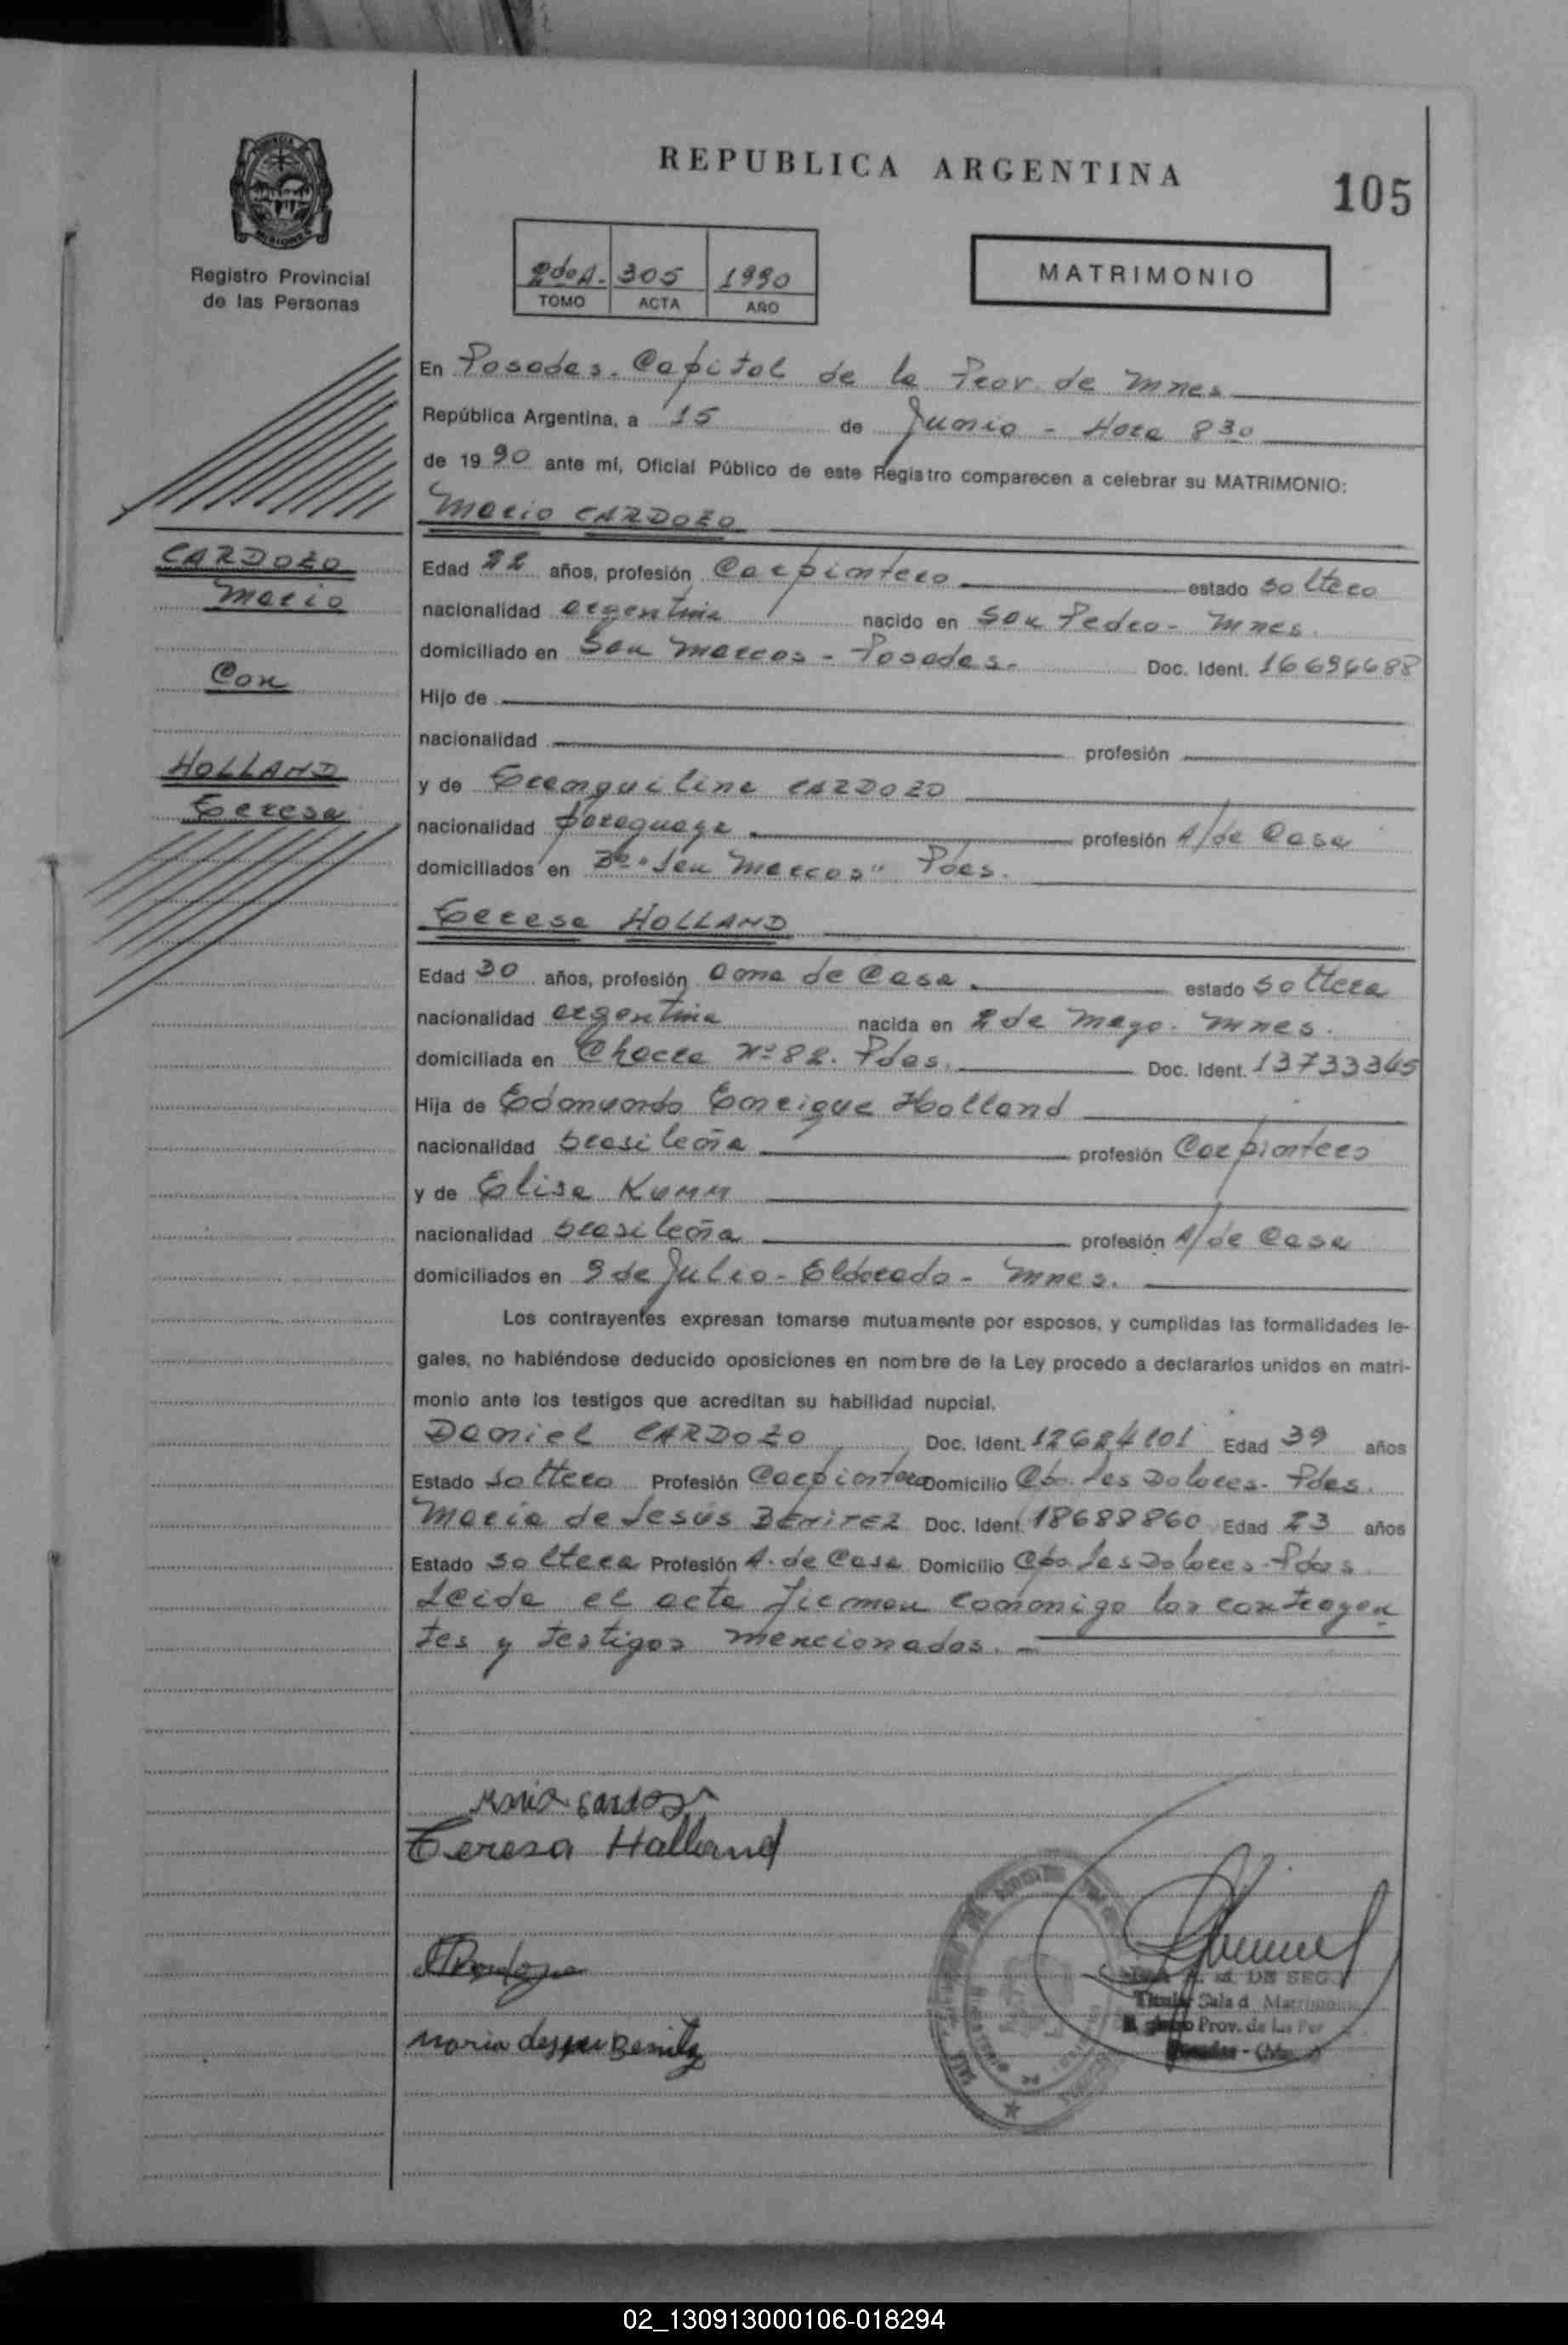 REPUBLICA ARGENTINA
105
Registro Provincial
de las Personas
2do A. 305 1990
TOMO ACTA AÑO
MATRIMONIO
En Posadas. Capital de la Prov. de Mnes
República Argentina, a 15 de Junio - Hora 830
de 1990 ante mí, Oficial Público de este Registro comparecen a celebrar su MATRIMONIO:
Mario CARDOZO
CARDOZO
Mario
Con
HOLLAND
Teresa
Edad 22 años, profesión Carpintero estado soltero
nacionalidad argentina nacido en San Pedro - Mnes.
domiciliado en San Marcos - Posadas. Doc. Ident. 16696688
Hijo de
nacionalidad profesión
y de Tranquilina CARDOZO
nacionalidad paraguaya profesión A/de Casa
domiciliados en Bº "San Marcos" Pdas.
Teresa HOLLAND
Edad 30 años, profesión ama de Casa. estado soltera
nacionalidad argentina nacida en 2 de Mayo. Mnes.
domiciliada en Chacra Nº 82. Pdas. Doc. Ident. 13733345
Hija de Edmundo Enrique Holland
nacionalidad brasileña profesión Carpintero
y de Elisa
nacionalidad brasileña profesión A/de Casa
domiciliados en 9 de Julio - Eldorado - Mnes.
Los contrayentes expresan tomarse mutuamente por esposos, y cumplidas las formalidades le-
gales, no habiéndose deducido oposiciones en nombre de la Ley procedo a declararlos unidos en matri-
monio ante los testigos que acreditan su habilidad nupcial.
Daniel CARDOZO Doc. Ident. 12684101 Edad 39 años
Estado soltero Profesión Carpintero Domicilio Cpo. Las Dolores - Pdas.
María de Jesús BENITEZ Doc. Ident. 18688860 Edad 23 años
Estado soltera Profesión A. de Casa Domicilio Cpo. Las Dolores - Pdas.
Leida el acta firman conmigo los contrayen
tes y testigos mencionados. -
Mario Cardozo
Teresa Holland
Maria de Jesus Benitez
DE SEG
Titular Sala d Matrimoni
Prov. de las Per
02_130913000106-018294